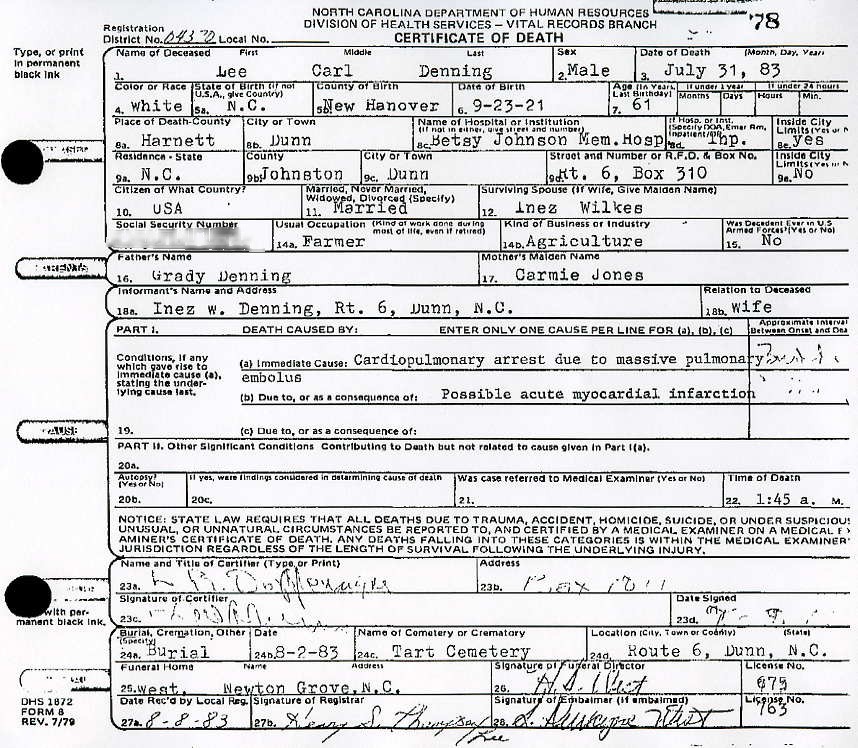 NORTH CAROLINA DEPARTMENT OF HUMAN RESOURCES
DIVISION OF HEALTH SERVICES – VITAL RECORDS BRANCH
CERTIFICATE OF DEATH
'78
Registration
District No. 04370 Local No.
Type, or print
in permanent
black ink
Name of Deceased First Middle Last Sex Date of Death (Month, Day, Year)
1. Lee Carl Denning 2. Male 3. July 31, 83
Color or Race State of Birth (If not U.S.A., give Country) County of Birth Date of Birth Age (In Years, Last Birthday) If under 1 year If under 24 hours
Months Days Hours Min.
4. white 5a. N.C. 5b. New Hanover 6. 9-23-21 7. 61
Place of Death-County City or Town Name of Hospital or Institution (If not in either, give street and number) If Hosp. or Inst. (Specify DOA, Emer Rm, Inpatient/OP) Inside City Limits (Yes or N
8a. Harnett 8b. Dunn 8c. Betsy Johnson Mem. Hosp 8d. Inp. 8e. yes
Residence - State County City or Town Street and Number or R.F.D. & Box No. Inside City Limits (Yes or N
9a. N.C. 9b. Johnston 9c. Dunn 9d. Rt. 6, Box 310 9e. No
Citizen of What Country? Married, Never Married, Widowed, Divorced (Specify) Surviving Spouse (If Wife, Give Maiden Name)
10. USA 11. Married 12. Inez Wilkes
Social Security Number Usual Occupation (Kind of work done during most of life, even if retired) Kind of Business or Industry Was Decedent Ever in U.S Armed Forces? (Yes or No)
14a. Farmer 14b. Agriculture 15. No
PARENTS
Father's Name Mother's Maiden Name
16. Grady Denning 17. Carmie Jones
Informant's Name and Address Relation to Deceased
18a. Inez w. Denning, Rt. 6, Dunn, N.C. 18b. wife
PART I. DEATH CAUSED BY: ENTER ONLY ONE CAUSE PER LINE FOR (a), (b), (c) Approximate Interval
Between Onset and Dea
Conditions, if any
which gave rise to
immediate cause (a),
stating the under-
lying cause last.
(a) Immediate Cause: Cardiopulmonary arrest due to massive pulmonary
embolus
(b) Due to, or as a consequence of: Possible acute myocardial infarction
CAUSE
19. (c) Due to, or as a consequence of:
PART II. Other Significant Conditions Contributing to Death but not related to cause given in Part I(a).
20a.
Autopsy? (Yes or No) If yes, were findings considered in determining cause of death Was case referred to Medical Examiner (Yes or No) Time of Death
20b. 20c. 21. 22. 1:45 a. M.
NOTICE: STATE LAW REQUIRES THAT ALL DEATHS DUE TO TRAUMA, ACCIDENT, HOMICIDE, SUICIDE, OR UNDER SUSPICIOUS
UNUSUAL, OR UNNATURAL CIRCUMSTANCES BE REPORTED TO, AND CERTIFIED BY A MEDICAL EXAMINER ON A MEDICAL EX
AMINER'S CERTIFICATE OF DEATH. ANY DEATHS FALLING INTO THESE CATEGORIES IS WITHIN THE MEDICAL EXAMINER'
JURISDICTION REGARDLESS OF THE LENGTH OF SURVIVAL FOLLOWING THE UNDERLYING INJURY.
Name and Title of Certifier (Type or Print) Address
23a. 23b. Box
Signature of Certifier Date Signed
23c. 23d.
with per-
manent black ink.
Burial, Cremation, Other (Specify) Date Name of Cemetery or Crematory Location (City, Town or County) (State)
24a. Burial 24b. 8-2-83 24c. Tart Cemetery 24d. Route 6, Dunn, N.C.
Funeral Home Name Address Signature of Funeral Director License No.
25. west, Newton Grove, N.C. 26. West 675
DHS 1872
FORM 8
REV. 7/79
Date Rec'd by Local Reg. Signature of Registrar Signature of Embalmer (If embalmed) License No.
27a. 8-8-83 27b. Henry S. Thompson 28. West 763